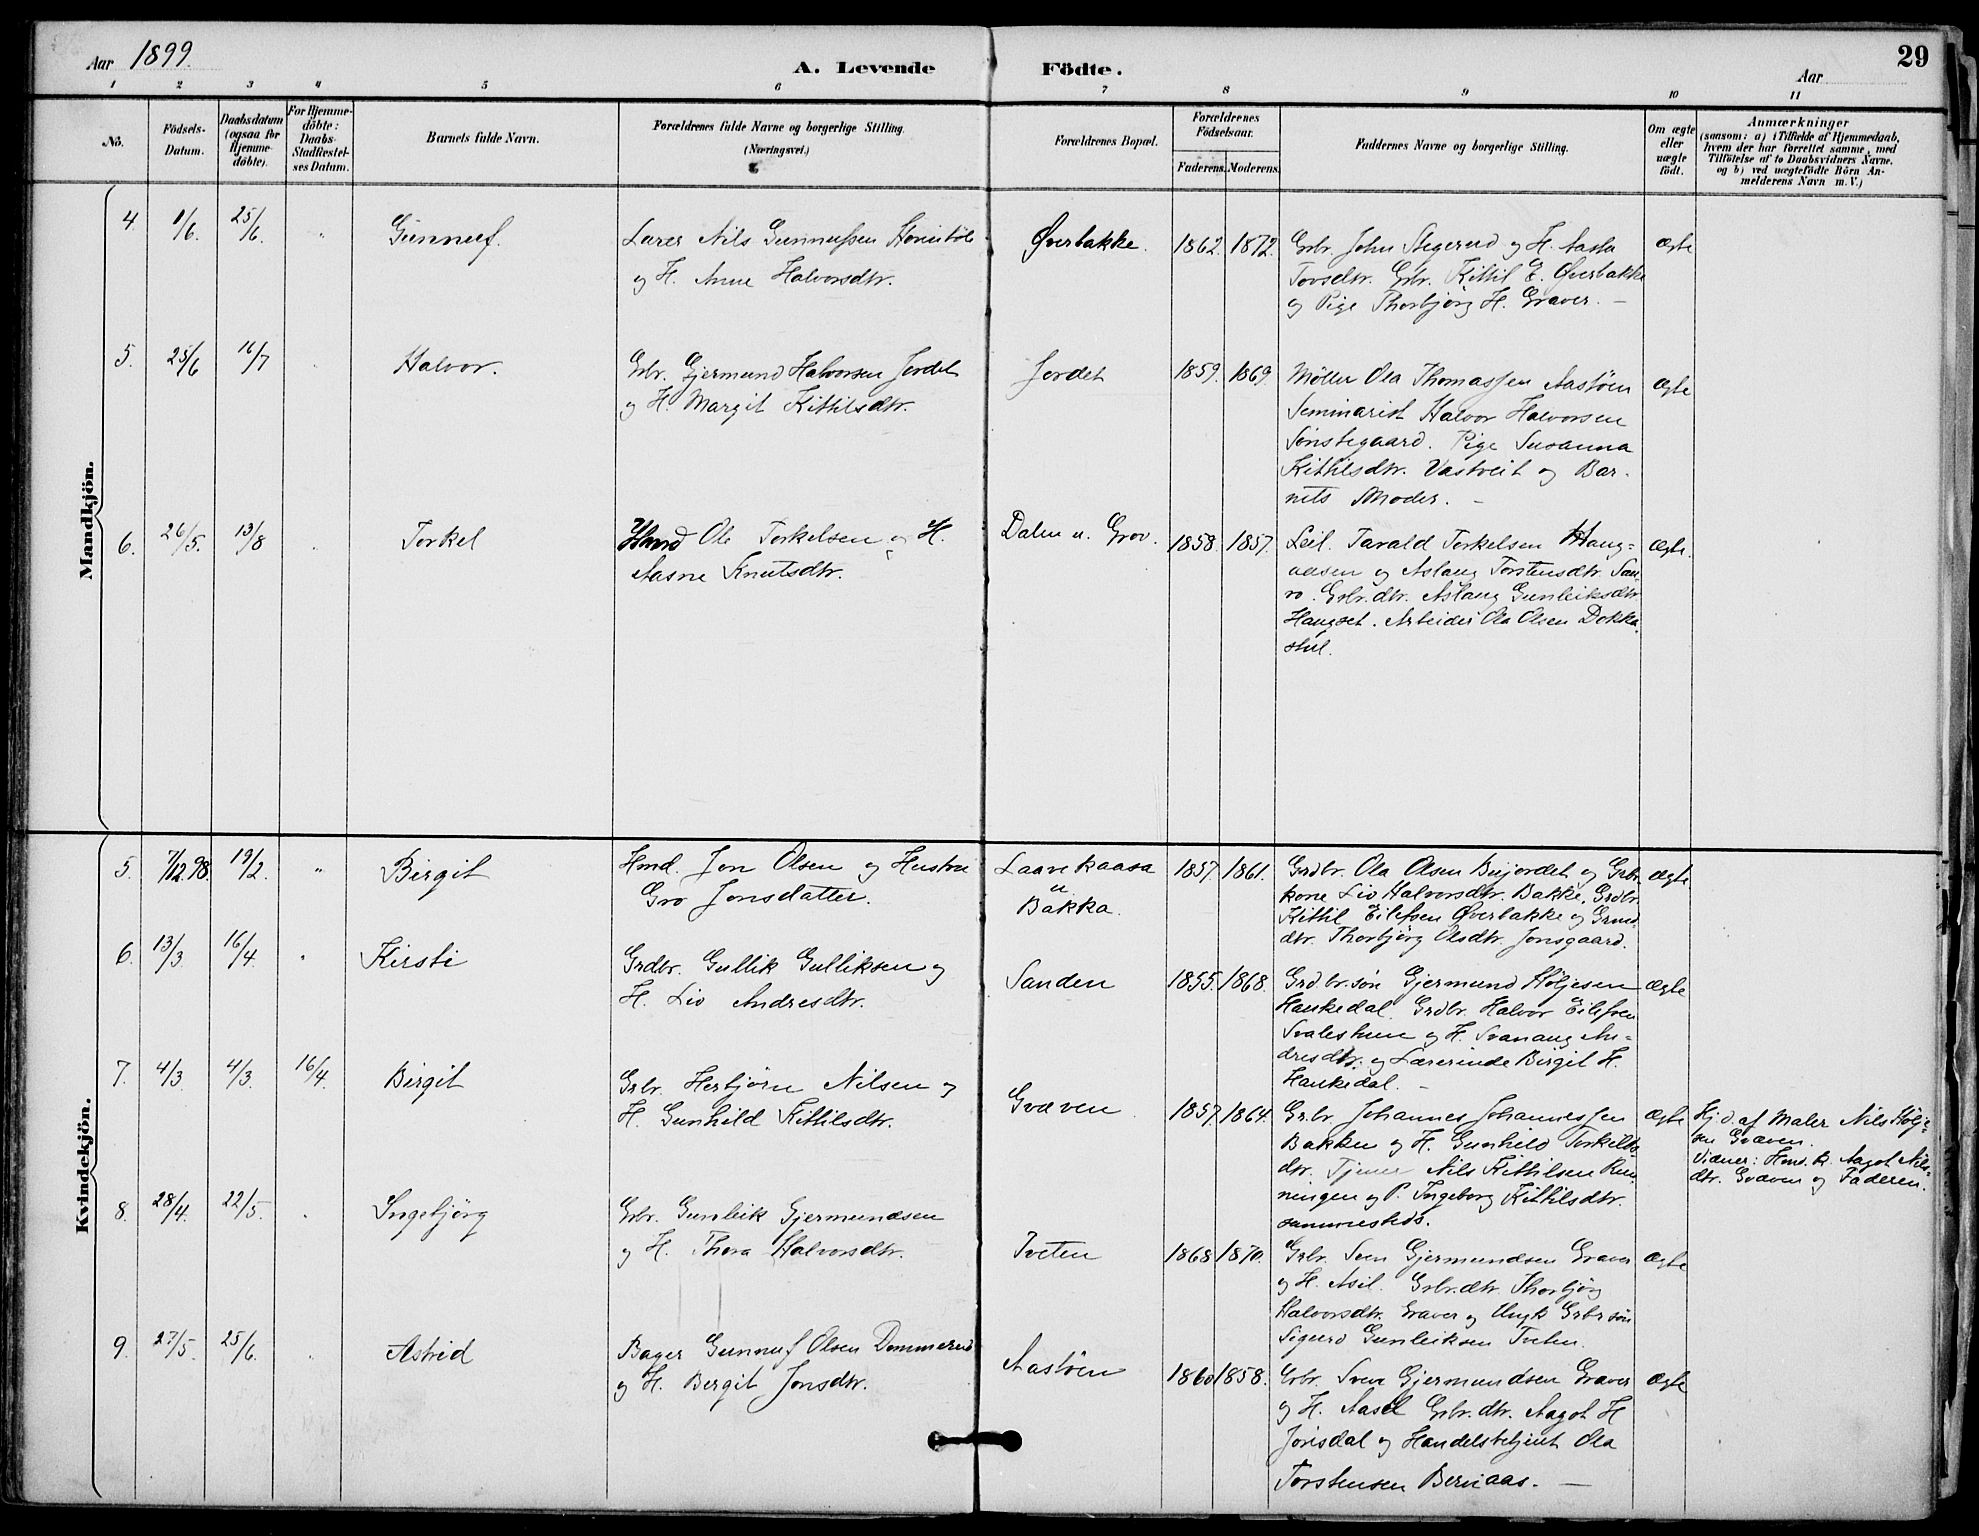 Aar 1899.
A. Levende Födte.
Aar
29
1 2 3 4 5 6 7 8 9 10 11
No.
Födsels-
Datum.
Daabsdatum
(ogsaa for
Hjemme-
döbte).
For Hjemme-
döbte:
Daabs-
Stadfæstel-
ses Datum.
Barnets fulde Navn.
Forældrenes fulde Navne og borgerlige Stilling.
(Næringsvei.)
Forældrenes Bopæl.
Forældrenes
Födselsaar.
Faderens. Moderens.
Faddernes Navne og borgerlige Stilling.
Om ægte
eller
uægte
födt.
Anmærkninger
(saasom: a) i Tilfælde af Hjemmedaab,
hvem der har forrettet samme, med
Tilföielse af to Daabsvidners Navne.
og b) ved uægtefödte Börn An-
melderens Navn m.V.)
Mandkjön.
4. 1/6. 25/6. " Gunnuf.
Lærer Nils Gunnufsen
og H. Anne Halvorsdtr.
Øverbakke. 1862. 1872.
Grbr. John Stegerud og H. Aasta
Tovsdtr. Grbr. Kittil E. Øverbakke
og Pige Thorbjørg H. Graver. —
Ægte
5. 25/6 16/7 Halvor.
Grbr. Gjermund Halvorsen Jordet
og H. Margit Kittilsdtr.
Jordet 1859. 1869.
Møller Ola Thomassen Aastøen
Seminarist Halvor Halvorsen
Sønstegaard. Pige Susanna
Kittilsdtr. Vastveit og Bar-
nets Moder. —
Ægte
6. 26/5. 13/8 Torkel
Hmd Ole Torkelsen og H.
Aasne Knutsdtr.
Dalen u. Grov. 1858. 1857.
Leil. Tarald Torkelsen Haug-
aasen og Aslaug Torstensdtr.
Grbr.dtr. Aslaug Gunleiksdtr
Haugset. Arbeider Ola Olsen Dokka
stul.
Ægte.
Kvindekjön.
5. 7/12.98. 19/2. " Birgit
Hmd. Jon Olsen og Hustru
Gro Jonsdatter.
Laavekaasa
u
Bakka.
1857. 1861.
Grdbr. Ola Olsen Bujordet og Grbr.
kone Liv Halvorsdtr. Bakke. Grdbr.
Kittil Eilefsen Øverbakke og
dtr. Thorbjørg Olsdtr. Jonsgaard.
ægte
6. 13/3 16/4. " Kirsti
Grdbr. Gullik Gulliksen og
H. Liv Andresdtr.
Sanden 1855. 1868.
Grd.br.søn Gjermund Høljesen
Haukedal. Grdbr. Halvor Eilefsen
og H. Svanaug An-
dresdtr. og Lærerinde Birgit H.
Haukedal. —
Ægte
7. 4/3 4/3. 16/4. Birgit
Grbr. Herbjørn Nilsen og
H. Gunhild Kittilsdtr.
Gvæven 1857. 1864.
Grbr Johannes Johannessen
Bakken og H. Gunhild Torkels-
dtr. Tjener Nils Kittilsen Run-
ningen og P. Ingeborg Kittilsdtr.
sammesteds.
Ægte
Hj.d. af Maler Nils Hølje-
sen Gvæven.
Vidner: Hmd.k. Aagot Nils-
dtr. Gvæven og Faderen.
8. 28/4. 22/5. Ingebjørg
Grbr. Gunleik Gjermundsen
og H. Thora Halvorsdtr.
Tveten 1868 1870.
Grbr. Sven Gjermundsen Graver
og H. Asil. Grbr.dtr. Thorbjørg
Halvorsdtr. Graver og Ungk. Grbr søn
Sigurd Gunleiksen Tveten.
Ægte
9. 27/5. 25/6. Astrid
Bager Gunnuf Olsen Dommerud
og H. Bergit Jonsdtr.
Aastøen 1860 1858.
Grbr. Sven Gjermundsen Graver
og H. Aasel Grbr.dtr. Aagot H
Jorisdal og Handelsbetjent Ola
Torstensen Bernaas. —
Ægte